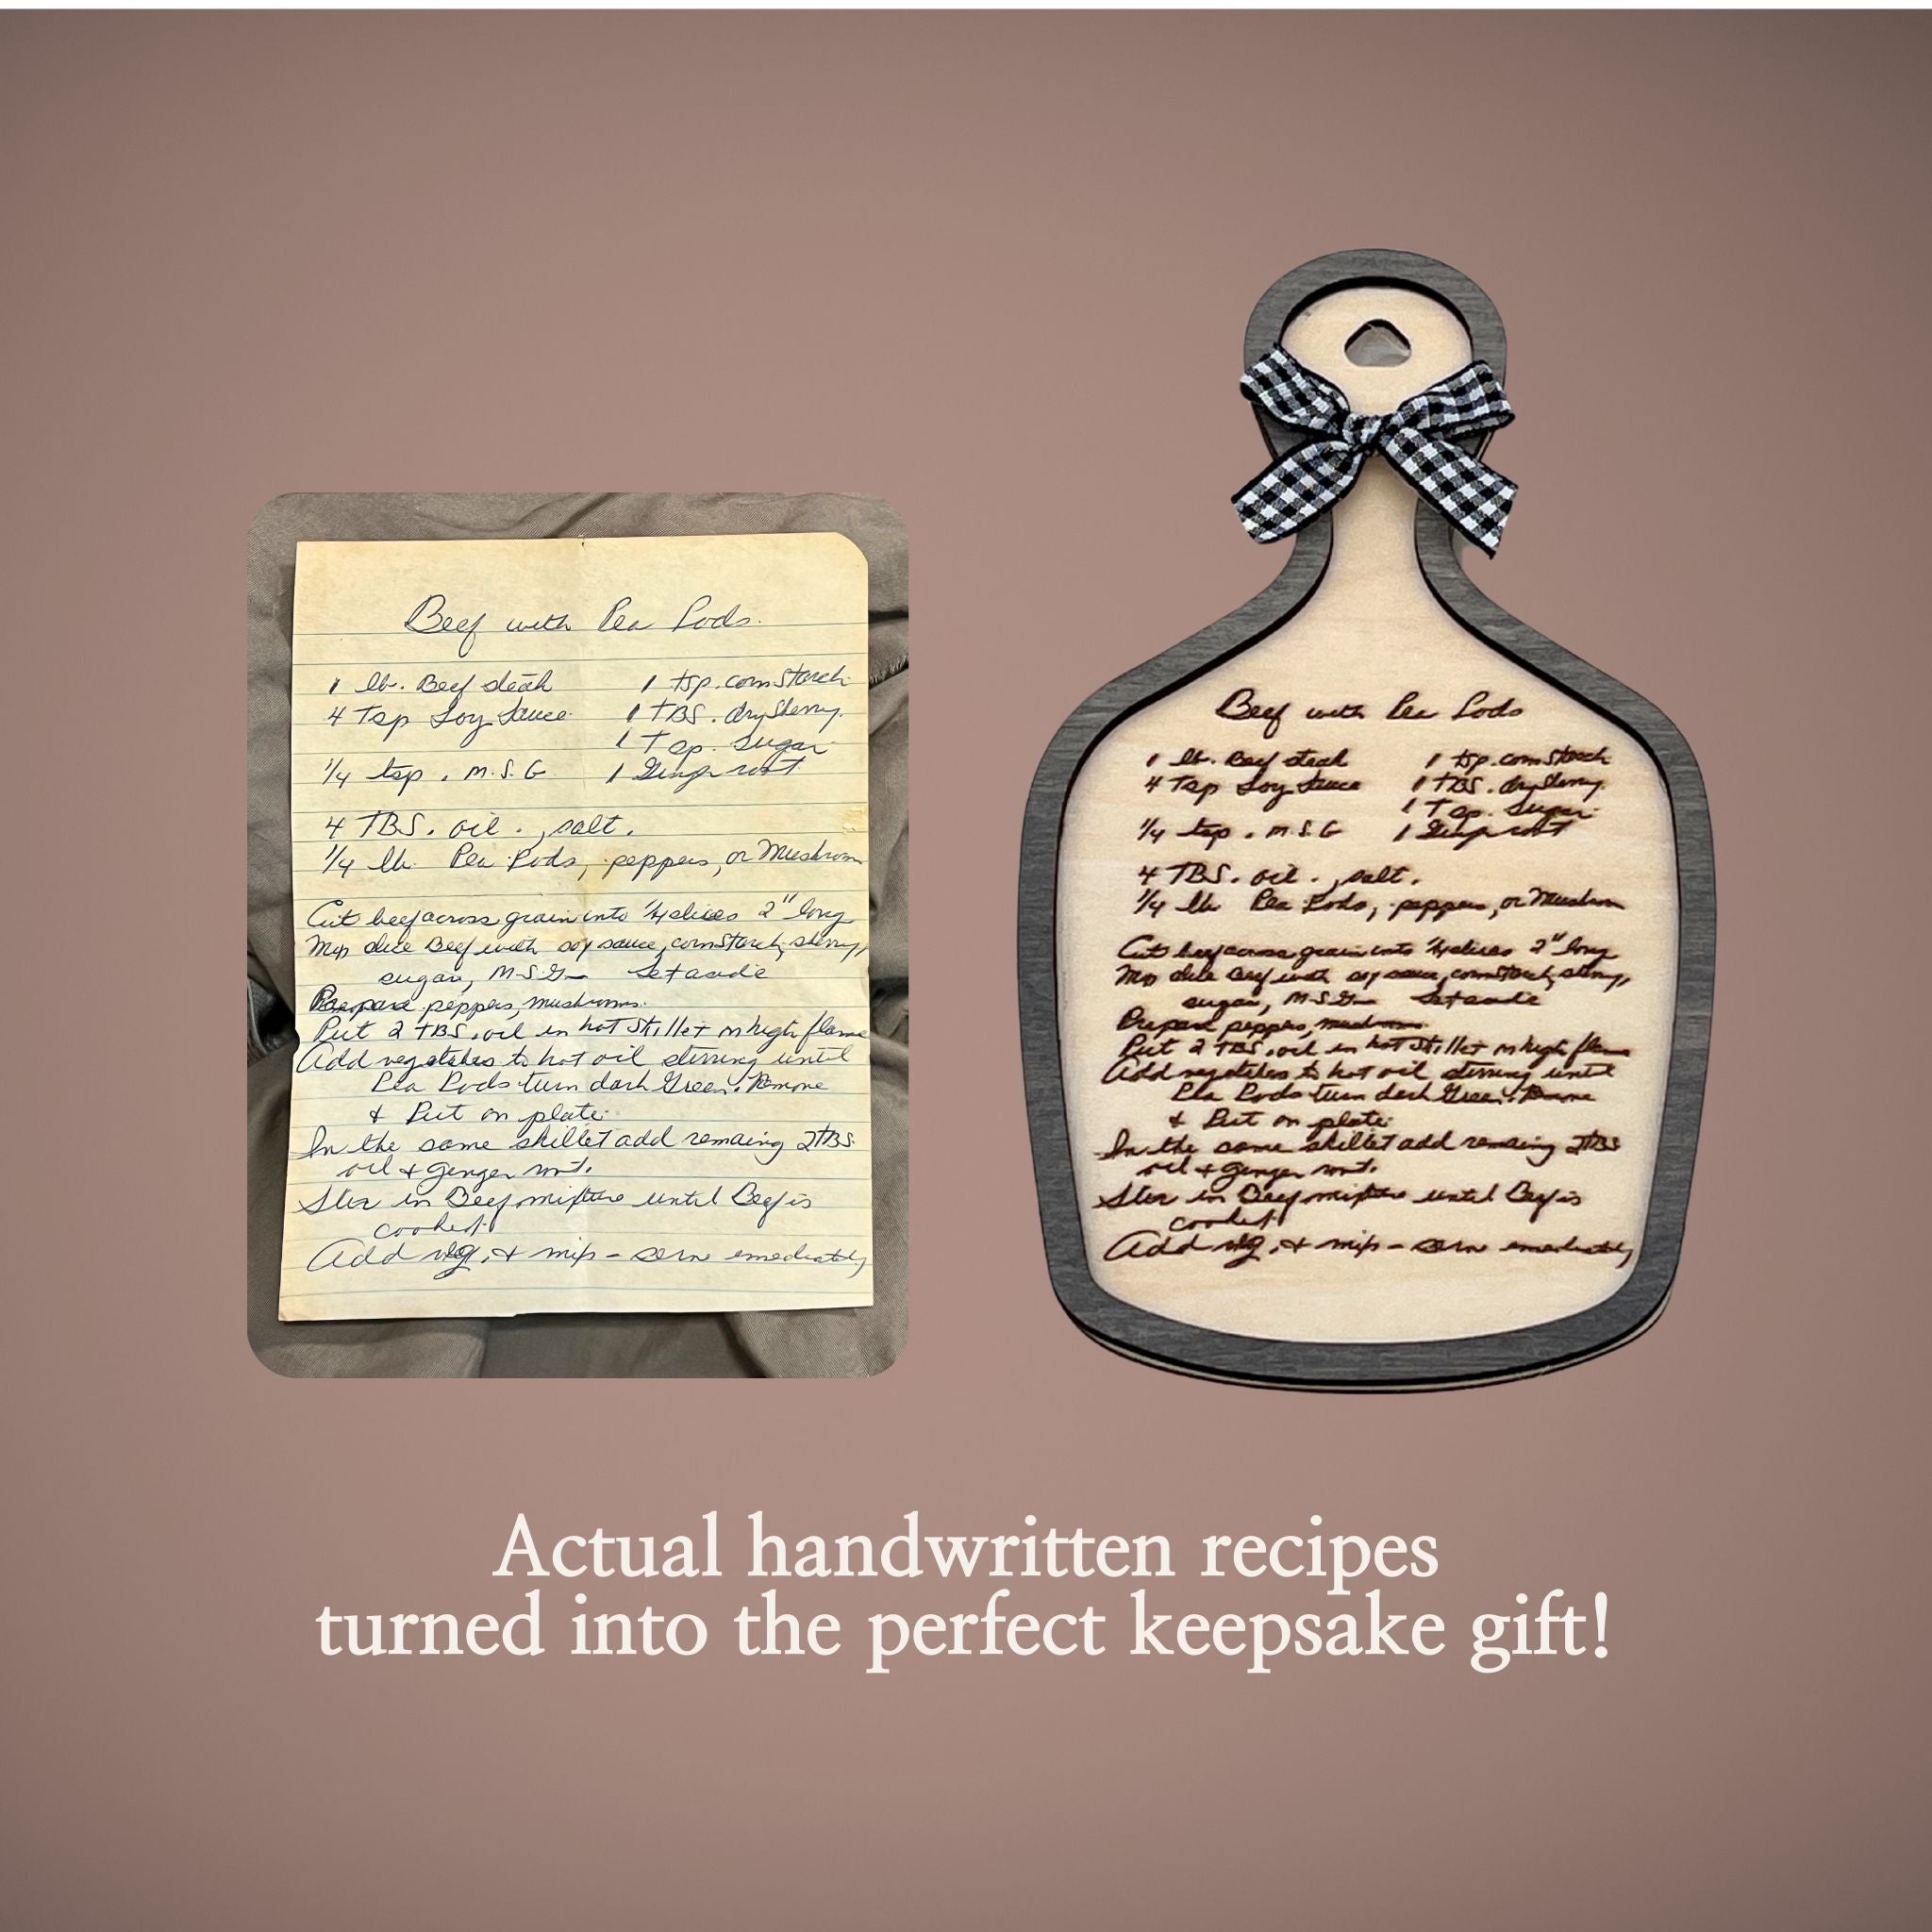 Beef with Pea Pods.
1 lb. Beef steak 1 tsp. cornstarch
4 Tsp Soy Sauce 1 TBS. dry Sherry.
1 Tsp. Sugar
1/4 tsp. M.S.G 1 Ginger root
4 TBS. oil., salt.
1/4 lb. Pea Pods, peppers, or Mushroom
Cut beef across grain into 1/4 slices 2" long
Mix slice Beef with soy sauce, cornstarch, sherry,
sugar, M.S.G— Set aside
Prepare peppers, mushrooms.
Put 2 TBS. oil in hot skillet on high flame
Add vegetables to hot oil stirring until
Pea Pods turn dark Green. Remove
& Put on plate.
In the same skillet add remaing 2TBS
oil & Ginger root.
Stir in Beef mixture until Beef is
cooked.
Add veg. & mix - serve emediately
Beef with Pea Pods
1 lb. Beef steak 1 tsp. cornstarch
4 Tsp Soy Sauce 1 TBS. dry Sherry.
1 Tsp. Sugar
1/4 tsp. M.S.G 1 Ginger root
4 TBS. oil., salt.
1/4 lb Pea Pods, peppers, or Mushroom
Cut beef across grain into 1/4 slices 2" long
Mix slice Beef with soy sauce, cornstarch, sherry,
sugar, M.S.G— Set aside
Prepare peppers, mushrooms.
Put 2 TBS. oil in hot skillet on high flame
Add vegetables to hot oil stirring until
Pea Pods turn dark Green. Remove
& Put on plate.
In the same skillet add remaing 2TBS
oil & Ginger root.
Stir in Beef mixture until Beef is
cooked.
Add veg. & mix - serve emediately
Actual handwritten recipes
turned into the perfect keepsake gift!